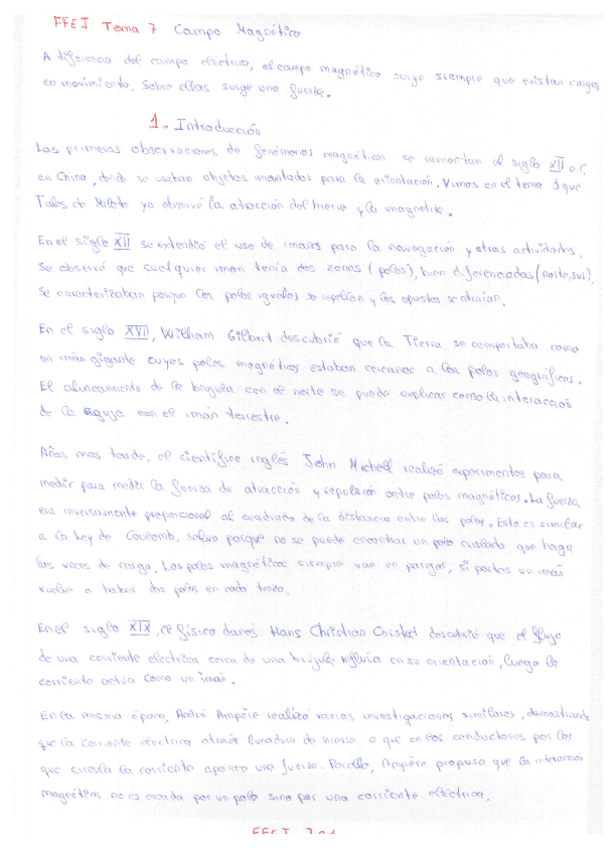 FFEI Tema 7 Campo Magnético
A diferencia del campo eléctrico, el campo magnético surge siempre que existan cargas
en movimiento. Sobre ellas surge una fuerza.
1. Introducción
Las primeras observaciones de fenómenos magnéticos se remontan al siglo XII a.C.
en China, donde se usaban objetos imantados para la orientación. Vimos en el tema 1 que
Tales de Mileto ya observó la atracción del hierro y la magnetita.
En el siglo XII se extendió el uso de imanes para la navegación y otras actividades.
Se observó que cualquier imán tenía dos zonas (polos), bien diferenciadas (norte, sur),
se caracterizaban porque los polos iguales se repelían y los opuestos se atraían.
En el siglo XVII, William Gilbert descubrió que la Tierra se comportaba como
un imán gigante cuyos polos magnéticos estaban cercanos a los polos geográficos.
El alineamiento de la brújula con el norte se puede explicar como la interacción
de la aguja con el imán terrestre.
Años mas tarde, el científico inglés John Michell realizó experimentos para
medir para medir la fuerza de atracción y repulsión entre polos magnéticos. La fuerza
era inversamente proporcional al cuadrado de la distancia entre los polos. Esto es similar
a la Ley de Coulomb, salvo porque no se puede encontrar un polo aislado que haga
las veces de carga. Los polos magnéticos siempre van en parejas, si partes un imán
vuelve a haber dos polos en cada trozo.
En el siglo XIX, el físico danés Hans Christian Oersted descubrió que el flujo
de una corriente electrica cerca de una brújula influía en su orientación, luego la
corriente actúa como un imán.
En la misma época, André Ampère realizó varias investigaciones similares, demostrando
que la corriente electrica atraía limadura de hierro o que en los conductores por los
que circula la corriente aparece una fuerza. Por ello, Ampère propuso que la interacción
magnética no es creada por un polo sino por una corriente eléctrica.
FFEI